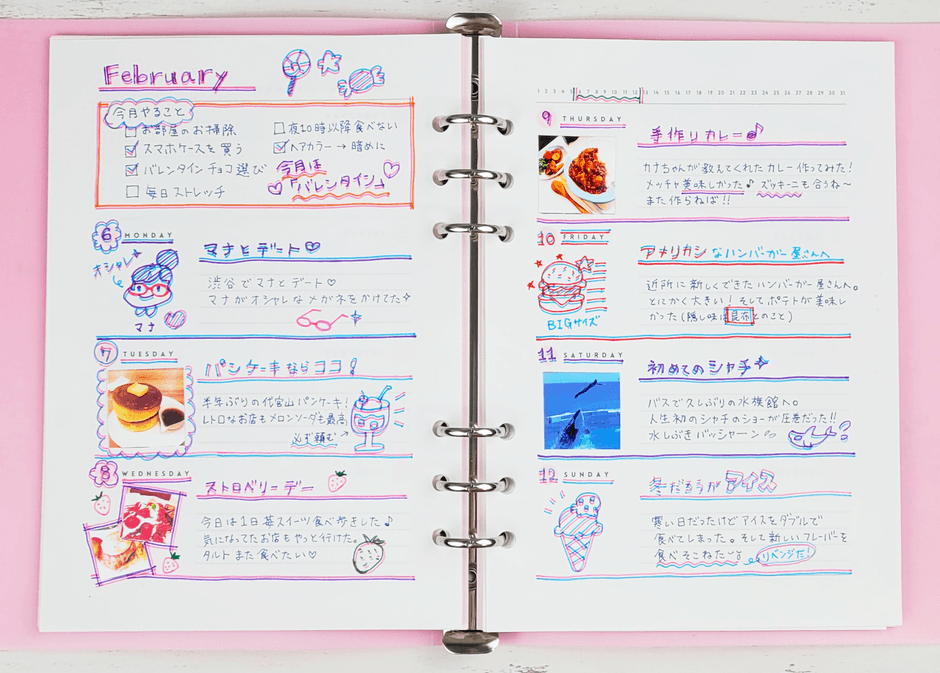 February
今月やること
お部屋のお掃除
スマホケースを買う
バレンタインチョコ選び
毎日ストレッチ
夜10時以降食べない
ヘアカラー→暗めに
今月は
「バレンタイン」
6 MONDAY
オシャレ
マナ
マナとデート♡
渋谷でマナとデート♡
マナがオシャレなメガネをかけてた
7 TUESDAY
パンケーキならココ!
半年ぶりの代官山パンケーキ!
レトロなお店もメロンソーダも最高
必ず頼む→
8 WEDNESDAY
ストロベリーデー
今日は1日苺スイーツ食べ歩きした♪
気になってたお店もやっと行けた。
タルトまた食べたい♡
1 2 3 4 5 6 7 8 9 10 11 12 13 14 15 16 17 18 19 20 21 22 23 24 25 26 27 28 29 30 31
9 THURSDAY
手作りカレー♪
カナちゃんが教えてくれたカレー作ってみた!
メッチャ美味しかった♪ ズッキーニも合うね〜
また作らねば!!
10 FRIDAY
BIGサイズ
アメリカンなハンバーガー屋さんへ
近所に新しくできたハンバーガー屋さんへ。
とにかく大きい!そしてポテトが美味し
かった(隠し味は昆布とのこと)
11 SATURDAY
初めてのシャチ
バスで久しぶりの水族館へ。
人生初のシャチのショーが圧巻だった!!
水しぶきバッシャーン
12 SUNDAY
冬だろうがアイス
寒い日だったけどアイスをダブルで
食べてしまった。そして新しいフレーバーを
食べそこねた
リベンジだ!